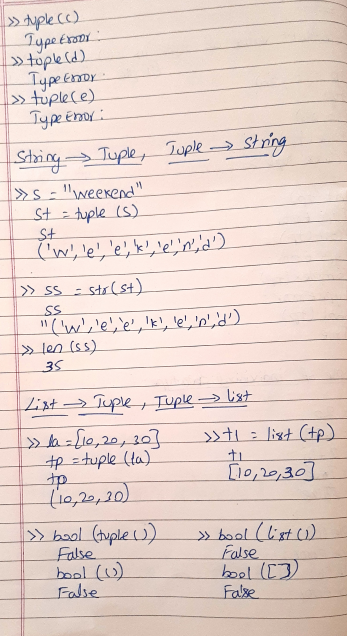 >> tuple(c)
Type Error:
>> tuple(d)
Type Error.
>> tuple(e)
Type Error:
String → Tuple, Tuple → String
>> s = "weekend"
st = tuple (s)
st
('w','e','e','k','e','n','d')
>> ss = str(st)
ss
"('w','e','e','k','e','n','d')
>> len (ss)
35
List → Tuple, Tuple → list
>> la = [10, 20, 30]
tp = tuple (la)
tp
(10, 20, 30)
>> tl = list (tp)
tl
[10, 20, 30]
>> bool (tuple ())
False
bool (())
False
>> bool (list ())
False
bool ([])
False